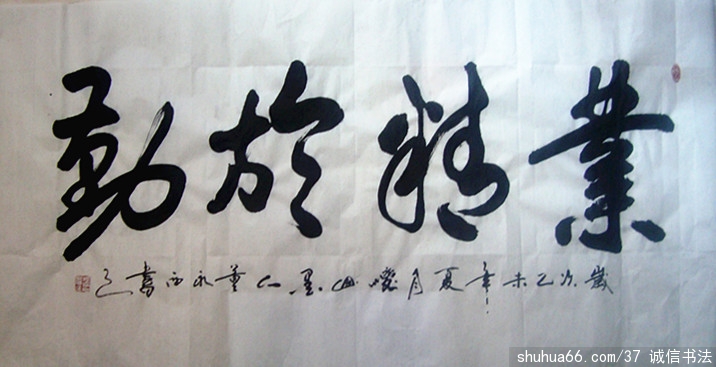 業精於勤
歲次乙未年夏月巙山墨人董永西書之
shuhua66.com/37 诚信书法